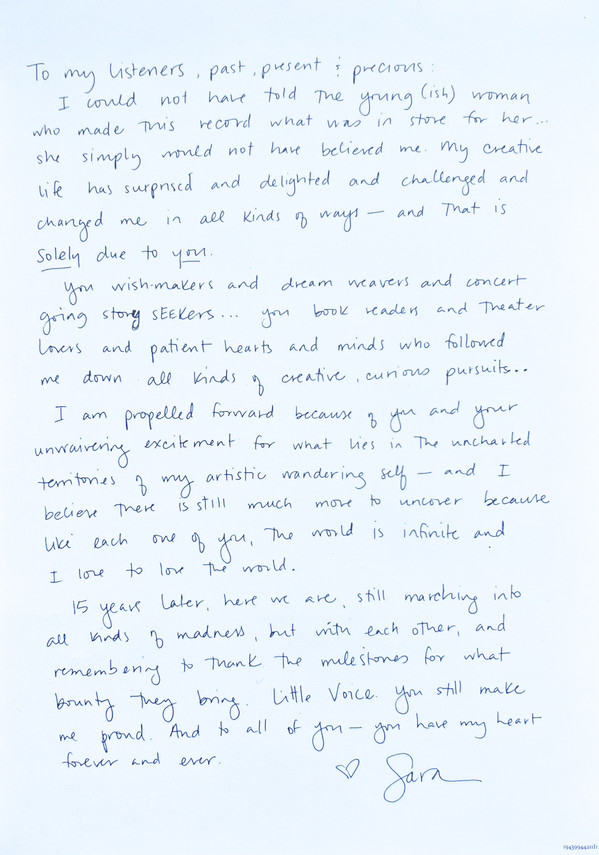 To my listeners, past, present & precious:
I could not have told the young(ish) woman
who made this record what was in store for her...
she simply would not have believed me. My creative
life has surprised and delighted and challenged and
changed me in all kinds of ways — and that is
solely due to you.
You wish-makers and dream weavers and concert
going story SEEKERS... you book readers and theater
lovers and patient hearts and minds who followed
me down all kinds of creative, curious pursuits..
I am propelled forward because of you and your
unwaivering excitement for what lies in the uncharted
territories of my artistic wandering self — and I
believe there is still much more to uncover because
like each one of you, the world is infinite and
I love to love the world.
15 years later, here we are, still marching into
all kinds of madness, but with each other, and
remembering to thank the milestones for what
bounty they bring. Little Voice. You still make
me proud. And to all of you — you have my heart
forever and ever.
♡ Sara